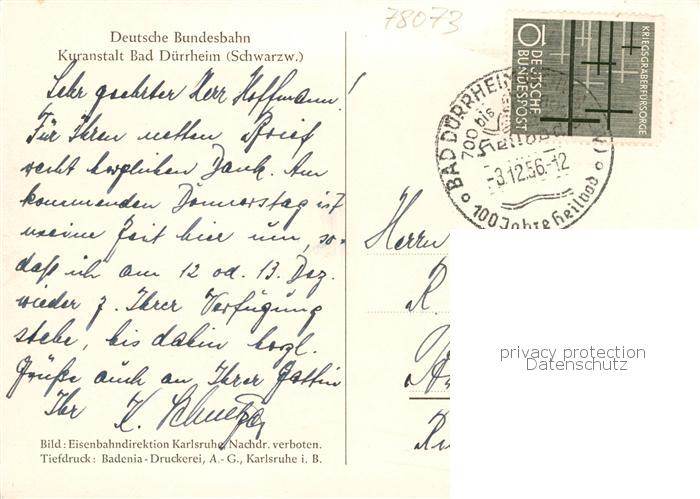 78073
Deutsche Bundesbahn
Kuranstalt Bad Dürrheim (Schwarzw.)
Sehr geehrter Herr Hoffmann!
Für Ihren netten Brief
recht herzlichen Dank. Am
kommenden Donnerstag ist
meine Zeit hier um, so-
daß ich am 12 od. 13. Dez.
wieder z. Ihrer Verfügung
stehe, bis dahin herzl.
Grüße auch an Ihrer Gattin
Ihr K.
Bild: Eisenbahndirektion Karlsruhe, Nachdr. verboten.
Tiefdruck: Badenia-Druckerei, A.-G., Karlsruhe i. B.
KRIEGSGRÄBERFÜRSORGE
10 DEUTSCHE
BUNDESPOST
BAD DÜRRHEIM
700 bis
-3.12.56.-12
100 Jahre Heilbad
Herrn
R.
privacy protection
Datenschutz